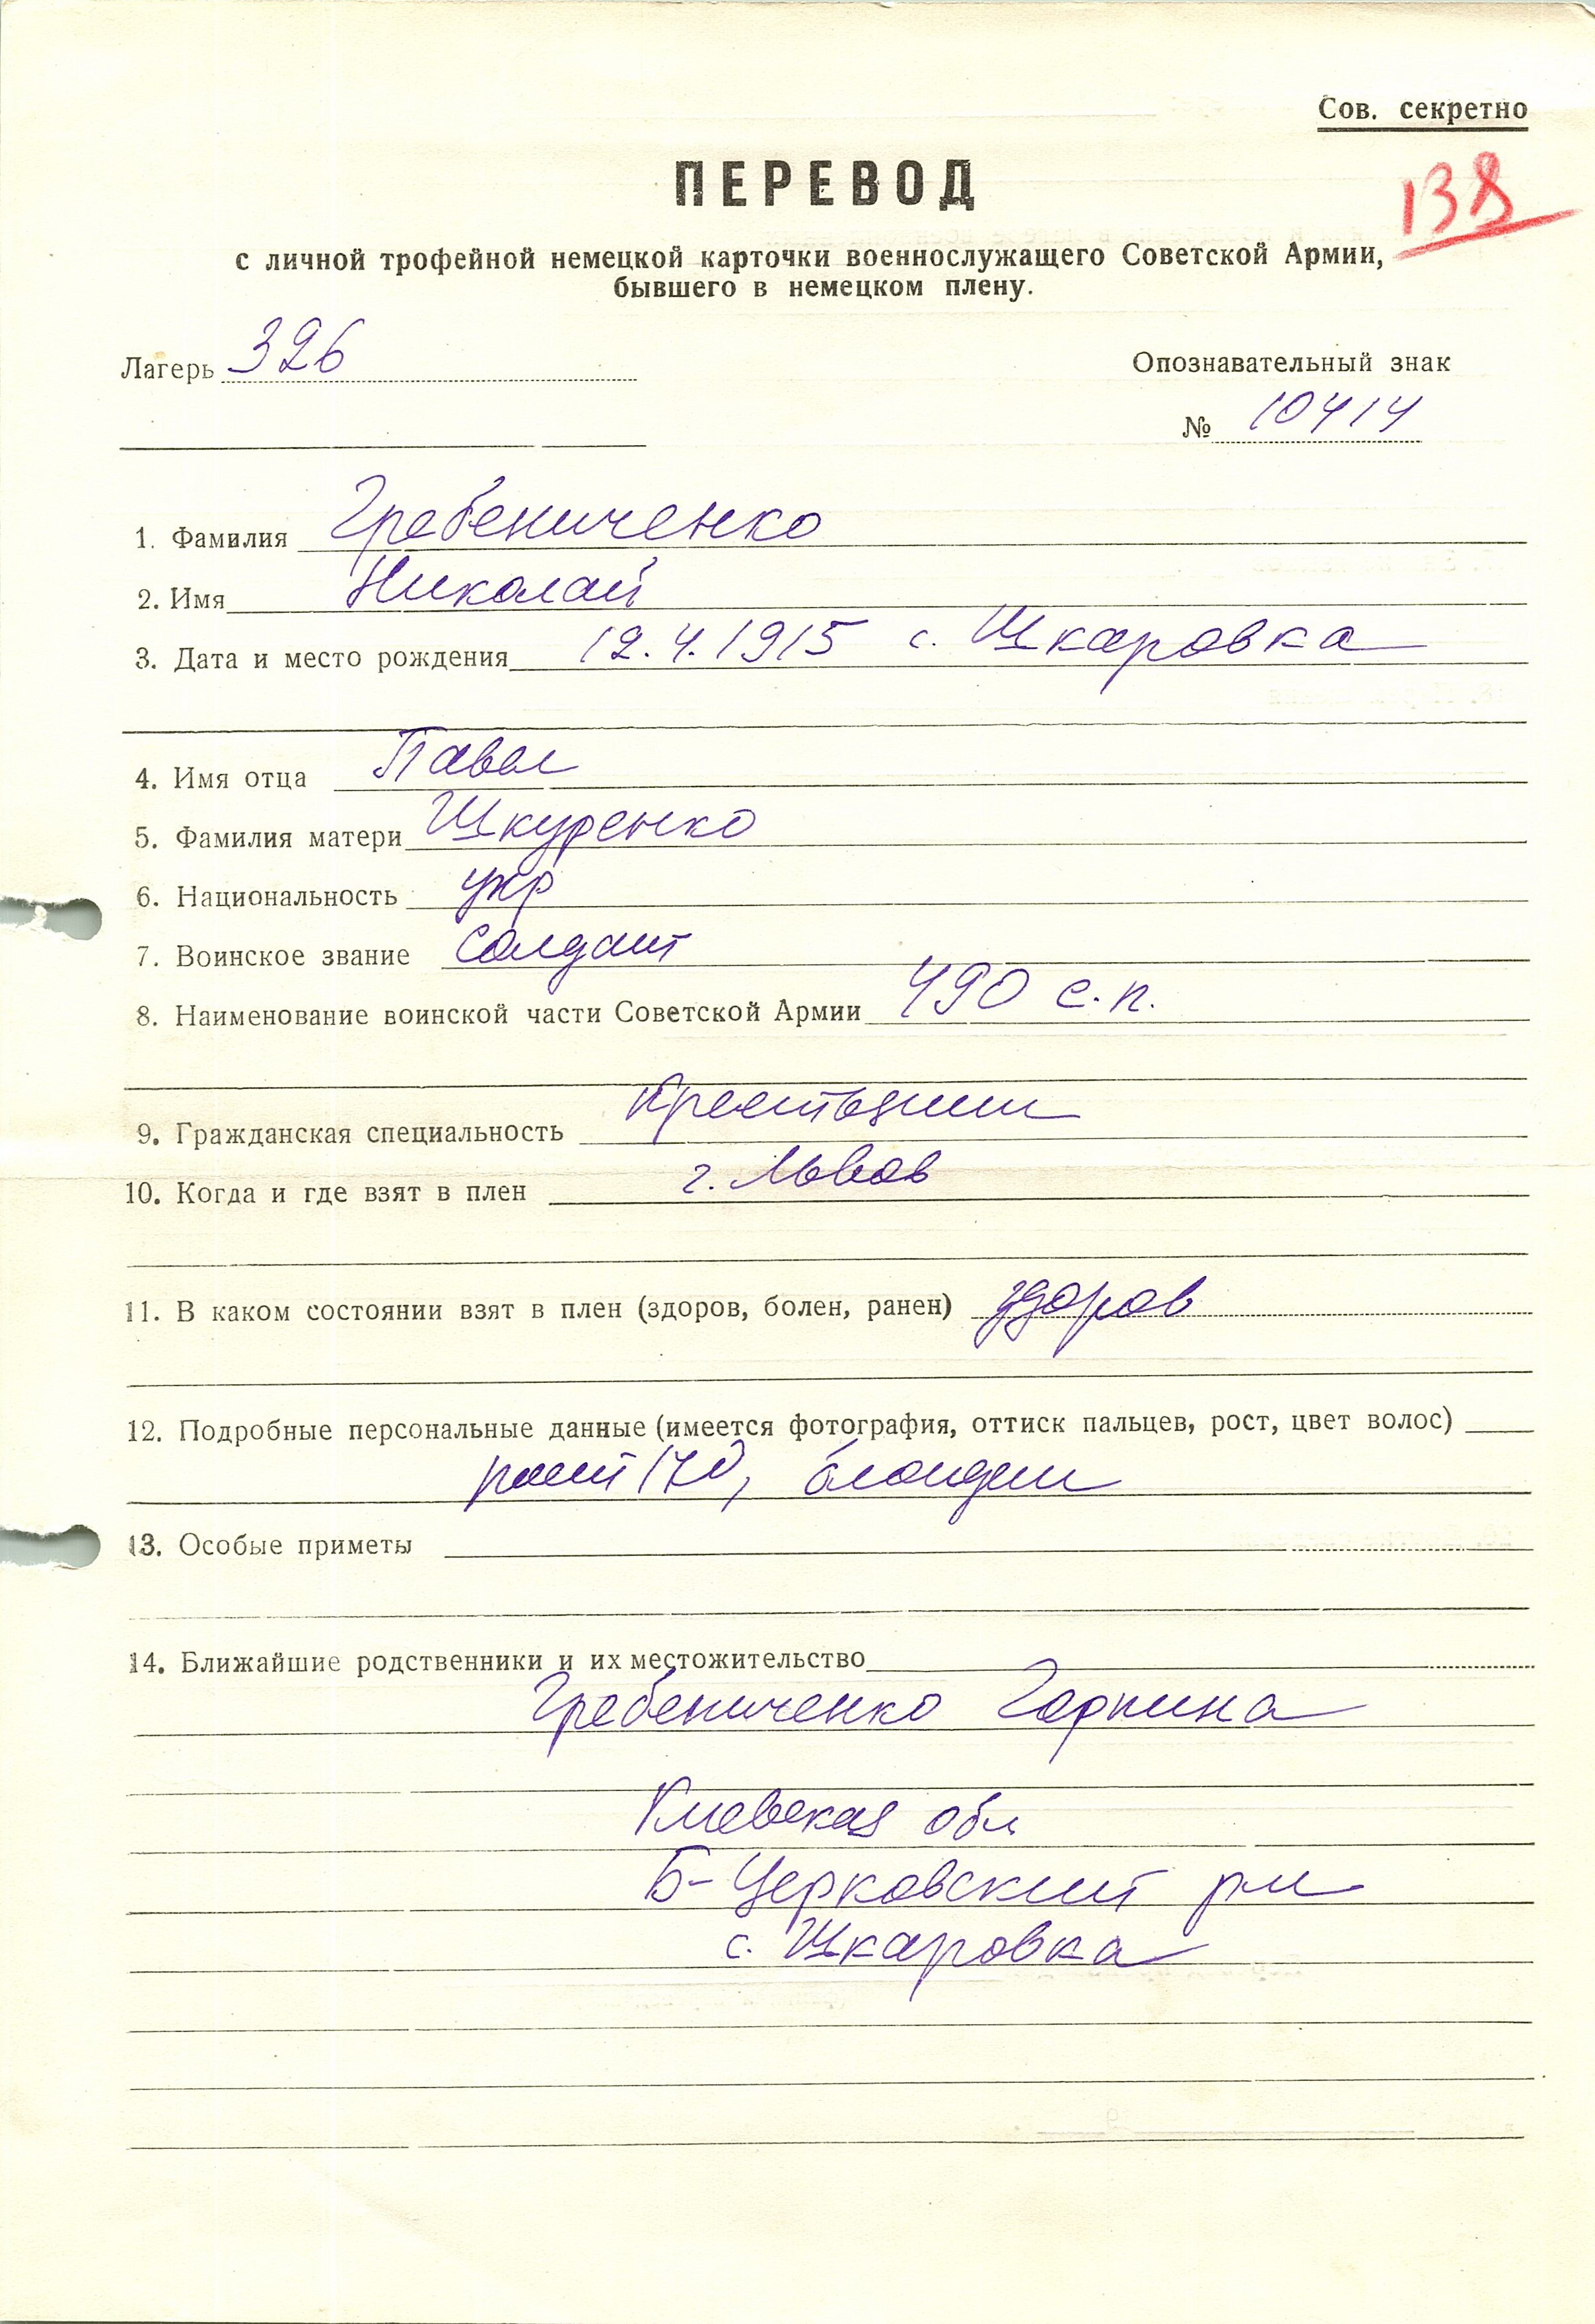 Сов. секретно
138
ПЕРЕВОД
с личной трофейной немецкой карточки военнослужащего Советской Армии,
бывшего в немецком плену.
Лагерь 326
Опознавательный знак
№ 10414
1. Фамилия Гребениченко
2. Имя Николай
3. Дата и место рождения 12.4.1915 с. Шкаровка
4. Имя отца Павел
5. Фамилия матери Шкуренко
6. Национальность укр
7. Воинское звание солдат
8. Наименование воинской части Советской Армии 490 с.п.
9. Гражданская специальность Крестьянин
10. Когда и где взят в плен г. Львов
11. В каком состоянии взят в плен (здоров, болен, ранен) здоров
12. Подробные персональные данные (имеется фотография, оттиск пальцев, рост, цвет волос)
рост 170, блондин
13. Особые приметы
14. Ближайшие родственники и их местожительство
Гребениченко Гарпина
Киевская обл
Б-Церковский р-н
с. Шкаровка